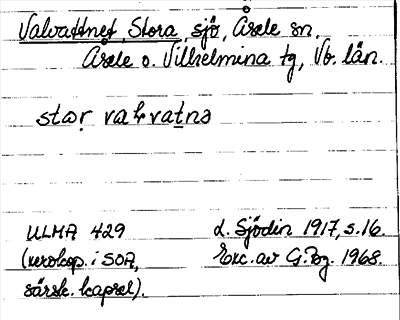 Valvattnet, Stora, sjö, Åsele sn,
Åsele o. Vilhelmina tg, Vb. län.
ULMA 429
(xerokop. i SOA,
särsk. kapsel).
L. Sjödin 1917, s. 16.
Exc. av G. Bg. 1968.